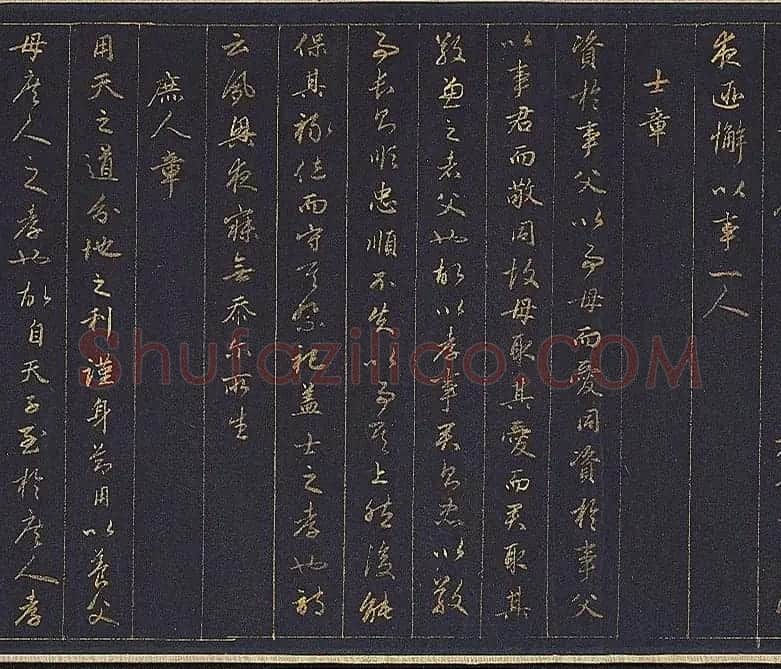 夜匪懈以事一人
士章
資於事父以事母而愛同資於事父
以事君而敬同故母取其愛而君取其
敬兼之者父也故以孝事君則忠以敬
事長則順忠順不失以事其上然後能
保其祿位而守其祭祀蓋士之孝也詩
云夙興夜寐無忝尔所生
庶人章
用天之道分地之利謹身節用以養父
母庶人之孝也故自天子至於庶人孝
Shufaziliao.COM